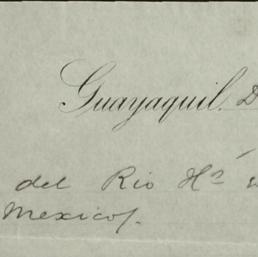 Guayaquil, D
del Rio Hª
Mexicof.